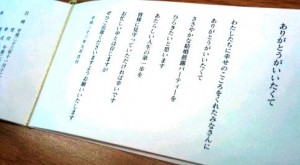 ありがとうがいいたくて
わたしたちに幸せのこころをくれたみなさんに
ありがとうがいいたくて
ささやかな結婚披露パーティーを
ひらきたいと思います
あたらしい人生の第一歩を
皆様に見守っていただければ幸いです
お忙しい中とは存じますが
ぜひご出席くださいますようお願いいたします
日時